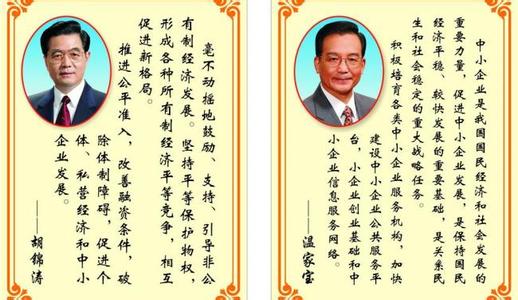 毫不动摇地鼓励、支持、引导非公
有制经济发展。坚持平等保护物权，
形成各种所有制经济平等竞争，相互
促进新格局。
推进公平准入，改善融资条件，破
除体制障碍，促进个
体、私营经济和中小
企业发展。
——胡锦涛
中小企业是我国国民经济和社会发展的
重要力量，促进中小企业发展，是保持国民
经济平稳、较快发展的重要基础，是关系民
生和社会稳定的重大战略任务。
积极培育各类中小企业服务机构，加快
建设中小企业公共服务平
台，小企业创业基础和中
小企业信息服务网络。
——温家宝